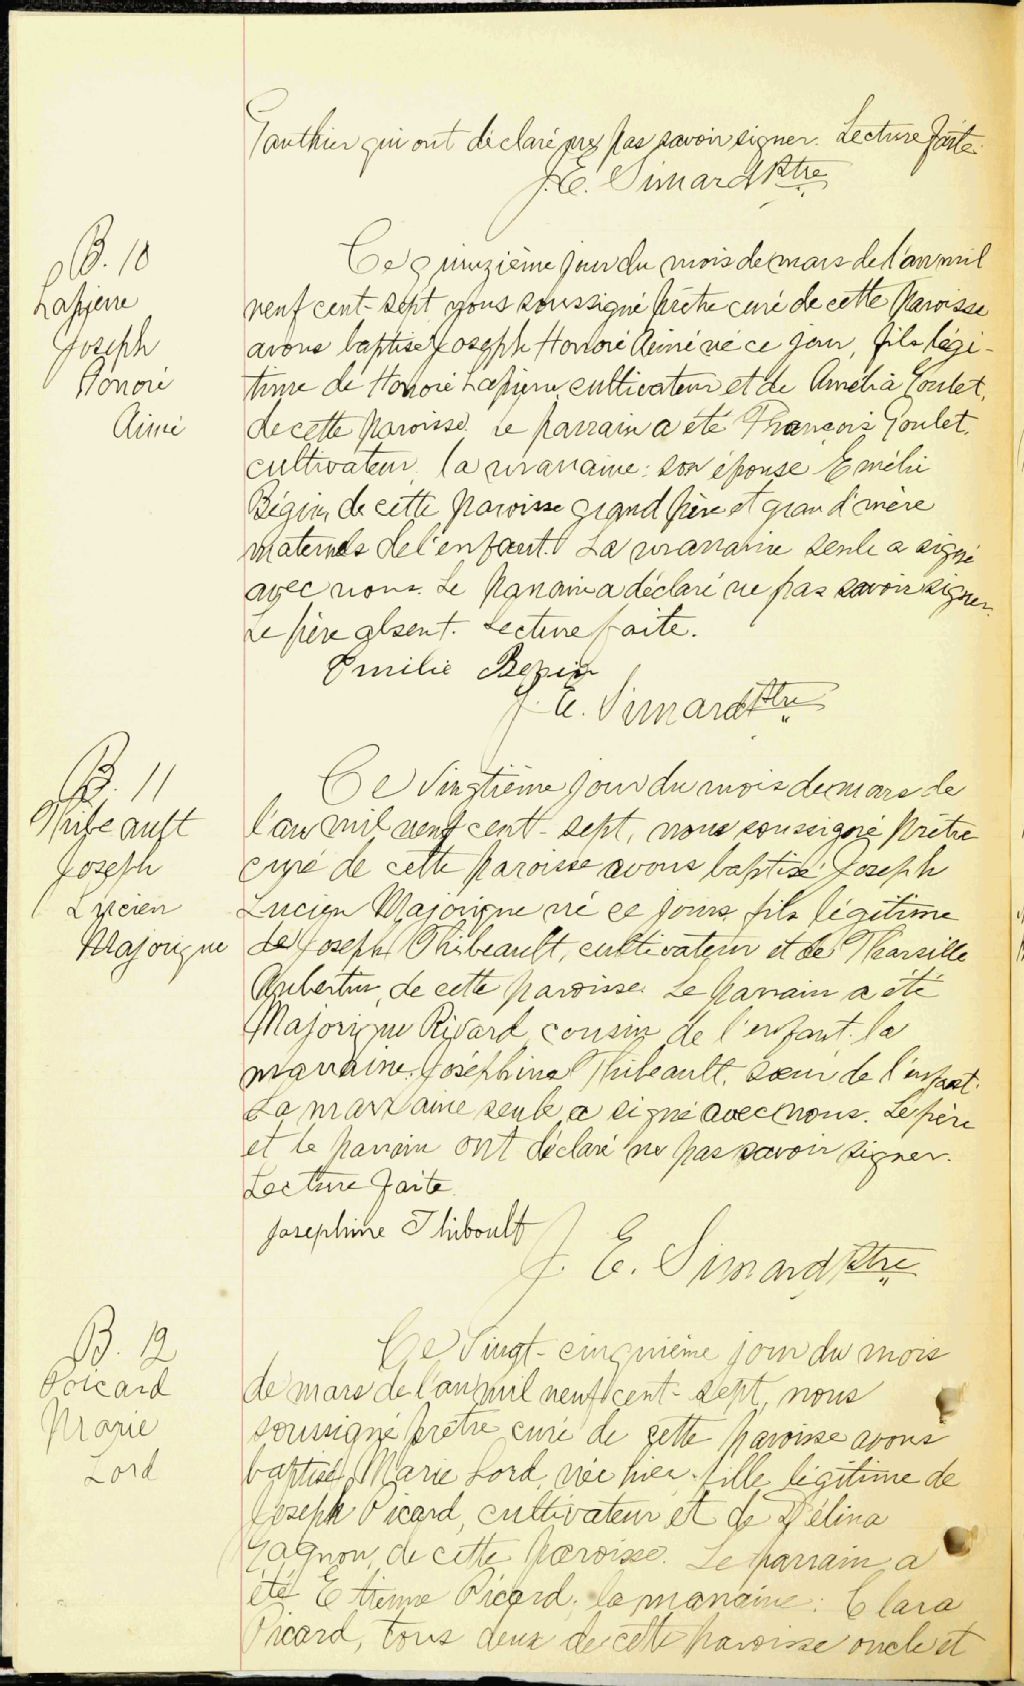 Gauthier qui ont déclaré ne pas savoir signer. Lecture faite.
J. E. Simard Ptre
B. 10
Lapierre
Joseph
Honoré
Aimé
Ce quinzième jour du mois de mars de l'an mil
neuf cent-sept nous soussigné prêtre curé de cette Paroisse
avons baptisé Joseph Honoré Aimé né ce jour, fils légi-
time de Honoré Lapierre, cultivateur et de Amélia Goulet,
de cette paroisse. Le parrain a été François Goulet,
cultivateur, la marraine: son épouse Emélie
Bégin, de cette paroisse grand père et grand'mère
maternels de l'enfant. La marraine seule a signé
avec nous. Le parrain a déclaré ne pas savoir signer.
Le père absent. Lecture faite.
Emilie Begin
J. E. Simard Ptre
B. 11
Thibeault
Joseph
Lucien
Majorique
Ce vingtième jour du mois de mars de
l'an mil neuf cent-sept, nous soussigné prêtre
curé de cette paroisse avons baptisé Joseph
Lucien Majorique né ce jour, fils légitime
de Joseph Thibeault, cultivateur et de Tharsille
Aubertin, de cette paroisse. Le parrain a été
Majorique Rivard, cousin de l'enfant. la
marraine, Joséphine Thibeault, sœur de l'enfant.
La marraine seule a signé avec nous. Le père
et le parrain ont déclaré ne pas savoir signer.
Lecture faite.
Josephine Thiboult
J. E. Simard Ptre
B. 12
Picard
Marie
Lord
Ce vingt-cinquième jour du mois
de mars de l'an mil neuf cent-sept, nous
soussigné prêtre, curé de cette paroisse avons
baptisé Marie Lord, née hier, fille légitime de
Joseph Picard, cultivateur et de Délina
Gagnon, de cette paroisse. Le parrain a
été Etienne Picard; la marraine: Clara
Picard, tous deux de cette paroisse oncle et